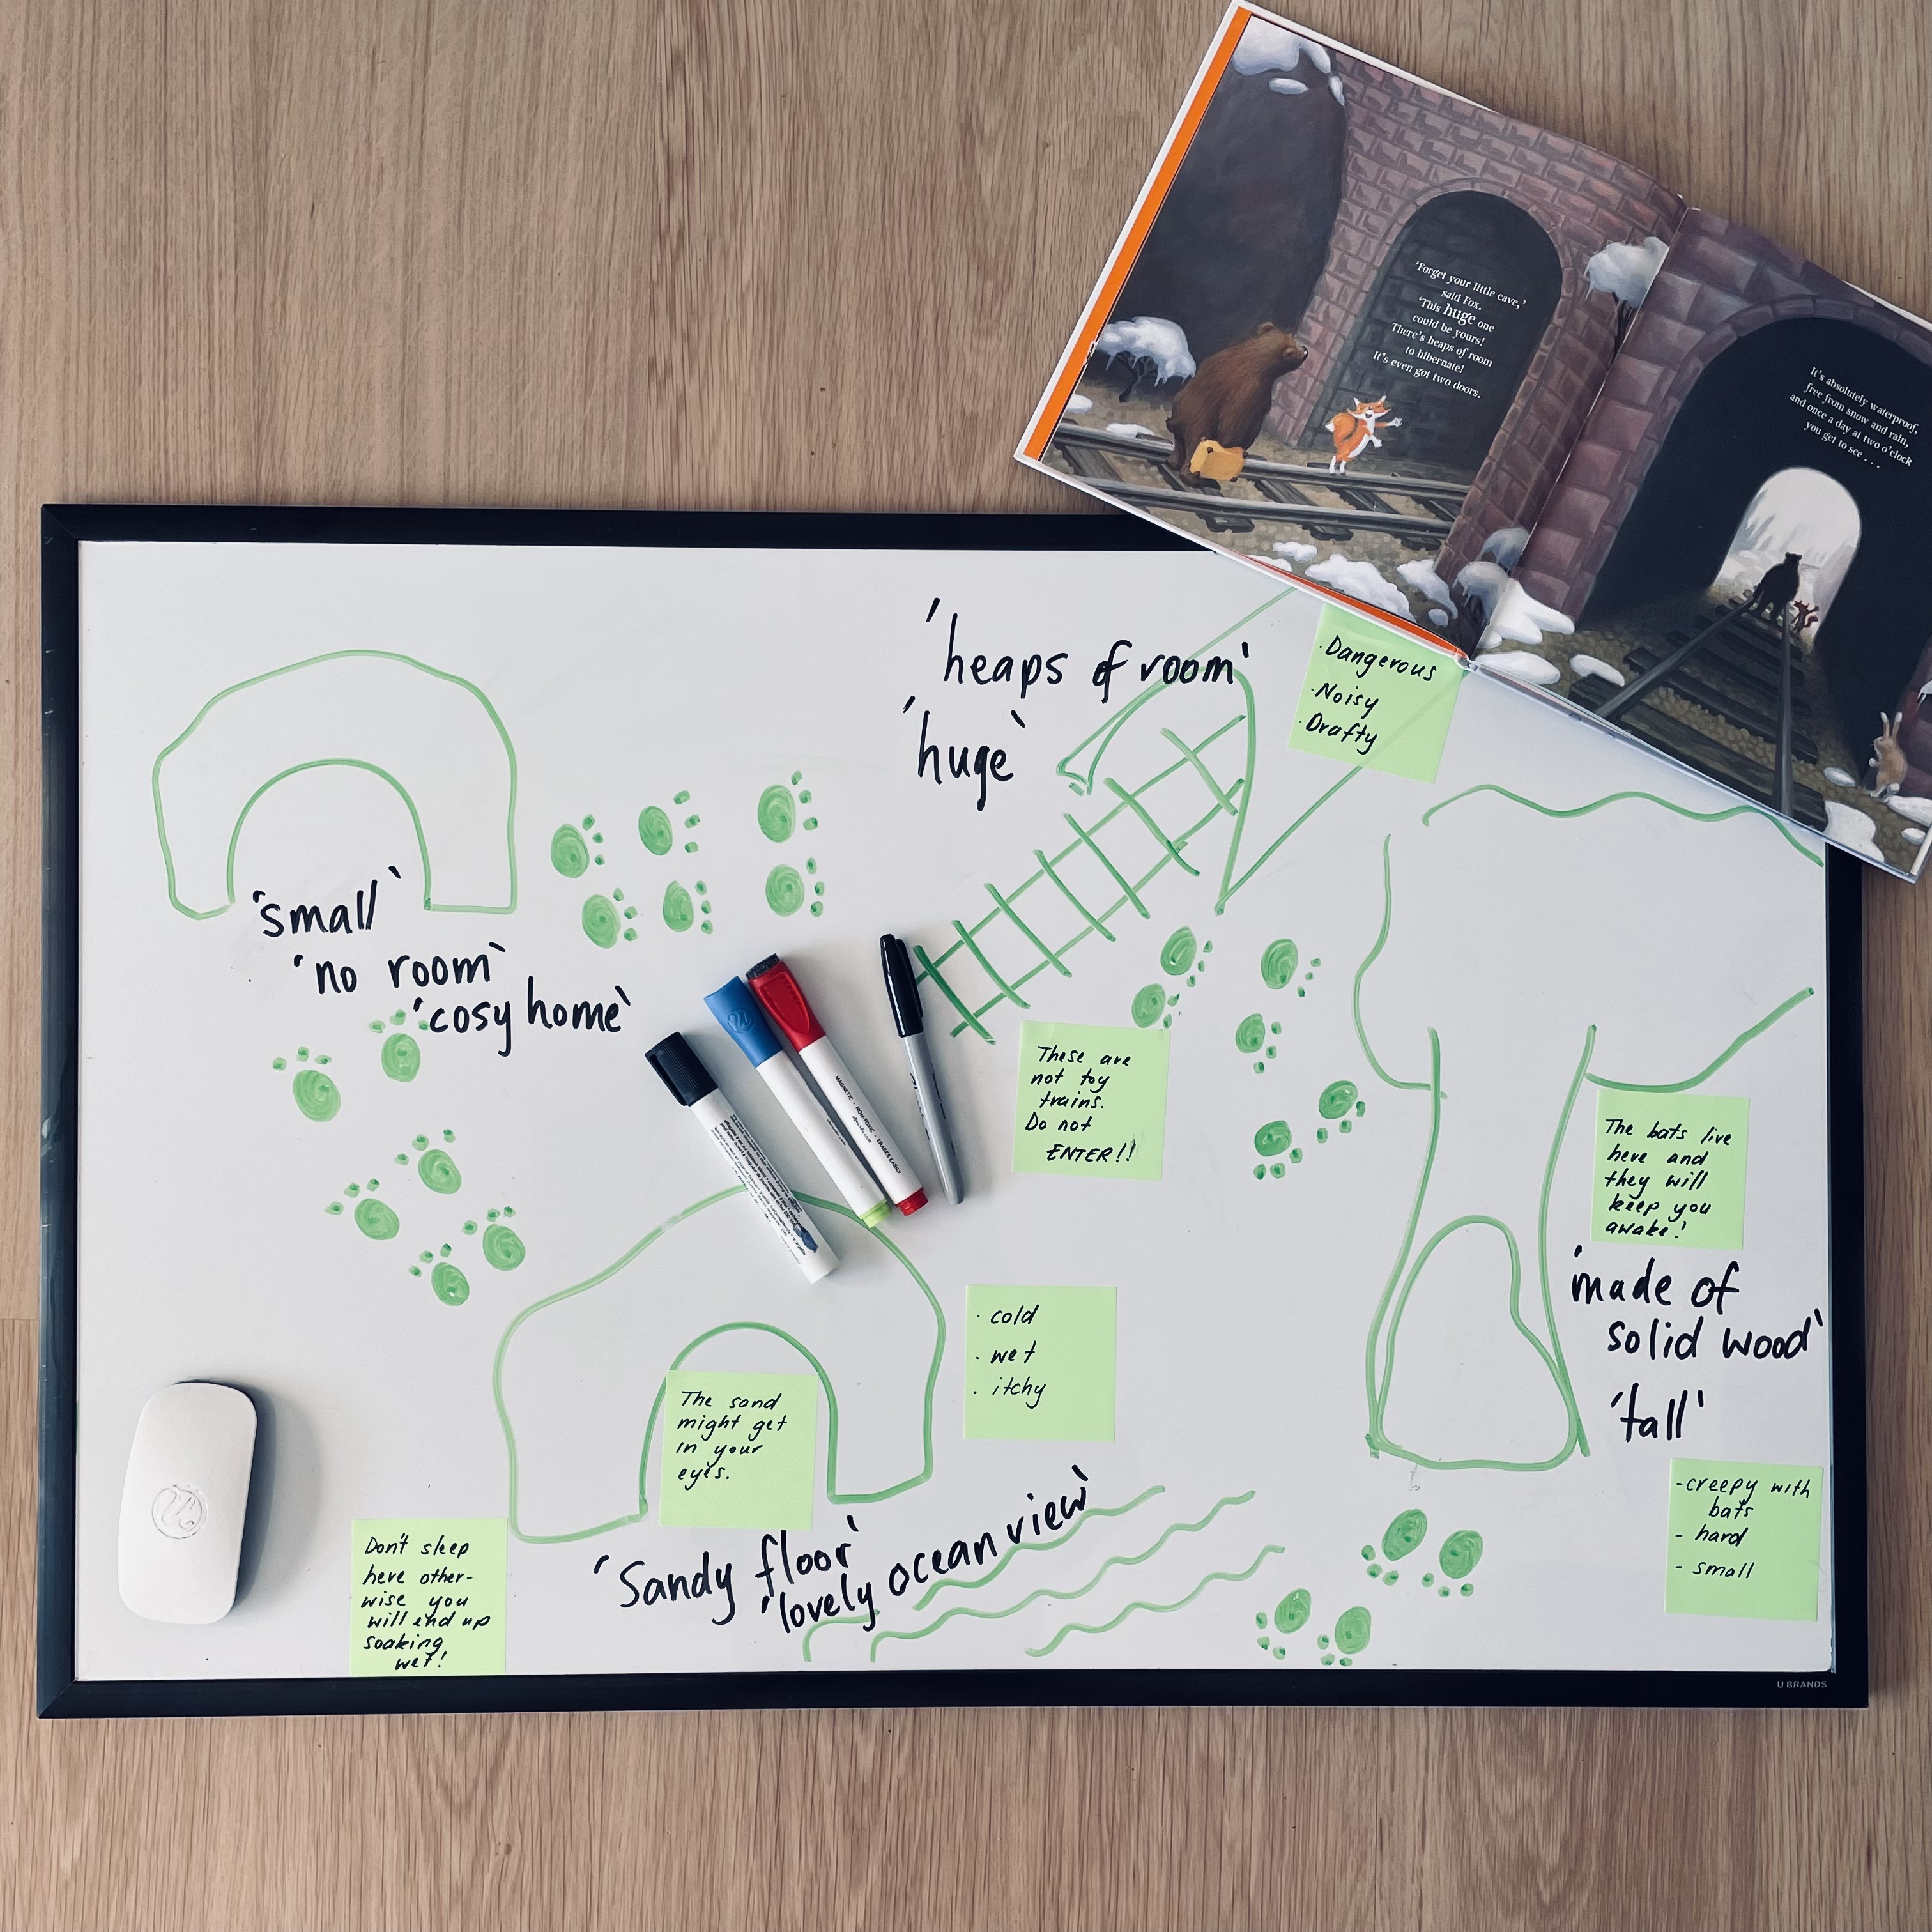 'Forget your little cave,'
said Fox.
'This huge one
could be yours!
There's heaps of room
to hibernate!
It's even got two doors.
It's absolutely waterproof,
free from snow and rain,
and once a day at two o'clock
you get to see . . .
'heaps of room'
'huge'
· Dangerous
· Noisy
· Drafty
'small'
'no room'
'cosy home'
These are
not toy
trains.
Do not
ENTER!!
The bats live
here and
they will
keep you
awake!
'made of
solid wood'
'tall'
- creepy with
bats
- hard
- small
· cold
· wet
· itchy
The sand
might get
in your
eyes.
'Sandy floor'
'lovely ocean view'
Don't sleep
here other-
wise you
will end up
soaking
wet!
MAGNETIC • NON-TOXIC • ERASES EASILY
U BRANDS